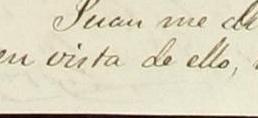 Juan me di
en vista de ello,